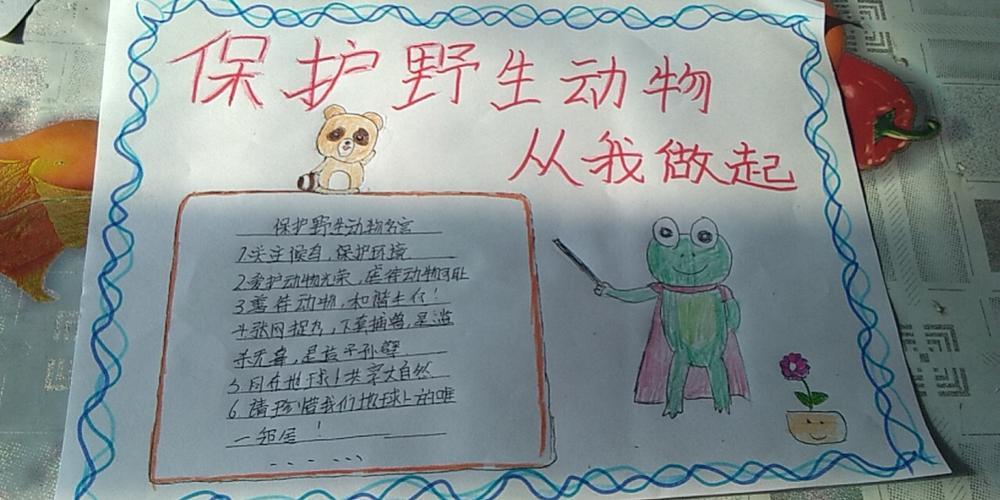 保护野生动物
从我做起
保护野生动物名言
1.关注候鸟,保护环境
2.爱护动物光荣,虐待动物可耻
3.善待动物,和谐共存!
4.张网捉鸟,下套捕兽,是滥
杀无辜,是孩子孙孽
5.同在地球!共享大自然
6.请珍惜我们地球上的唯
一邻居!